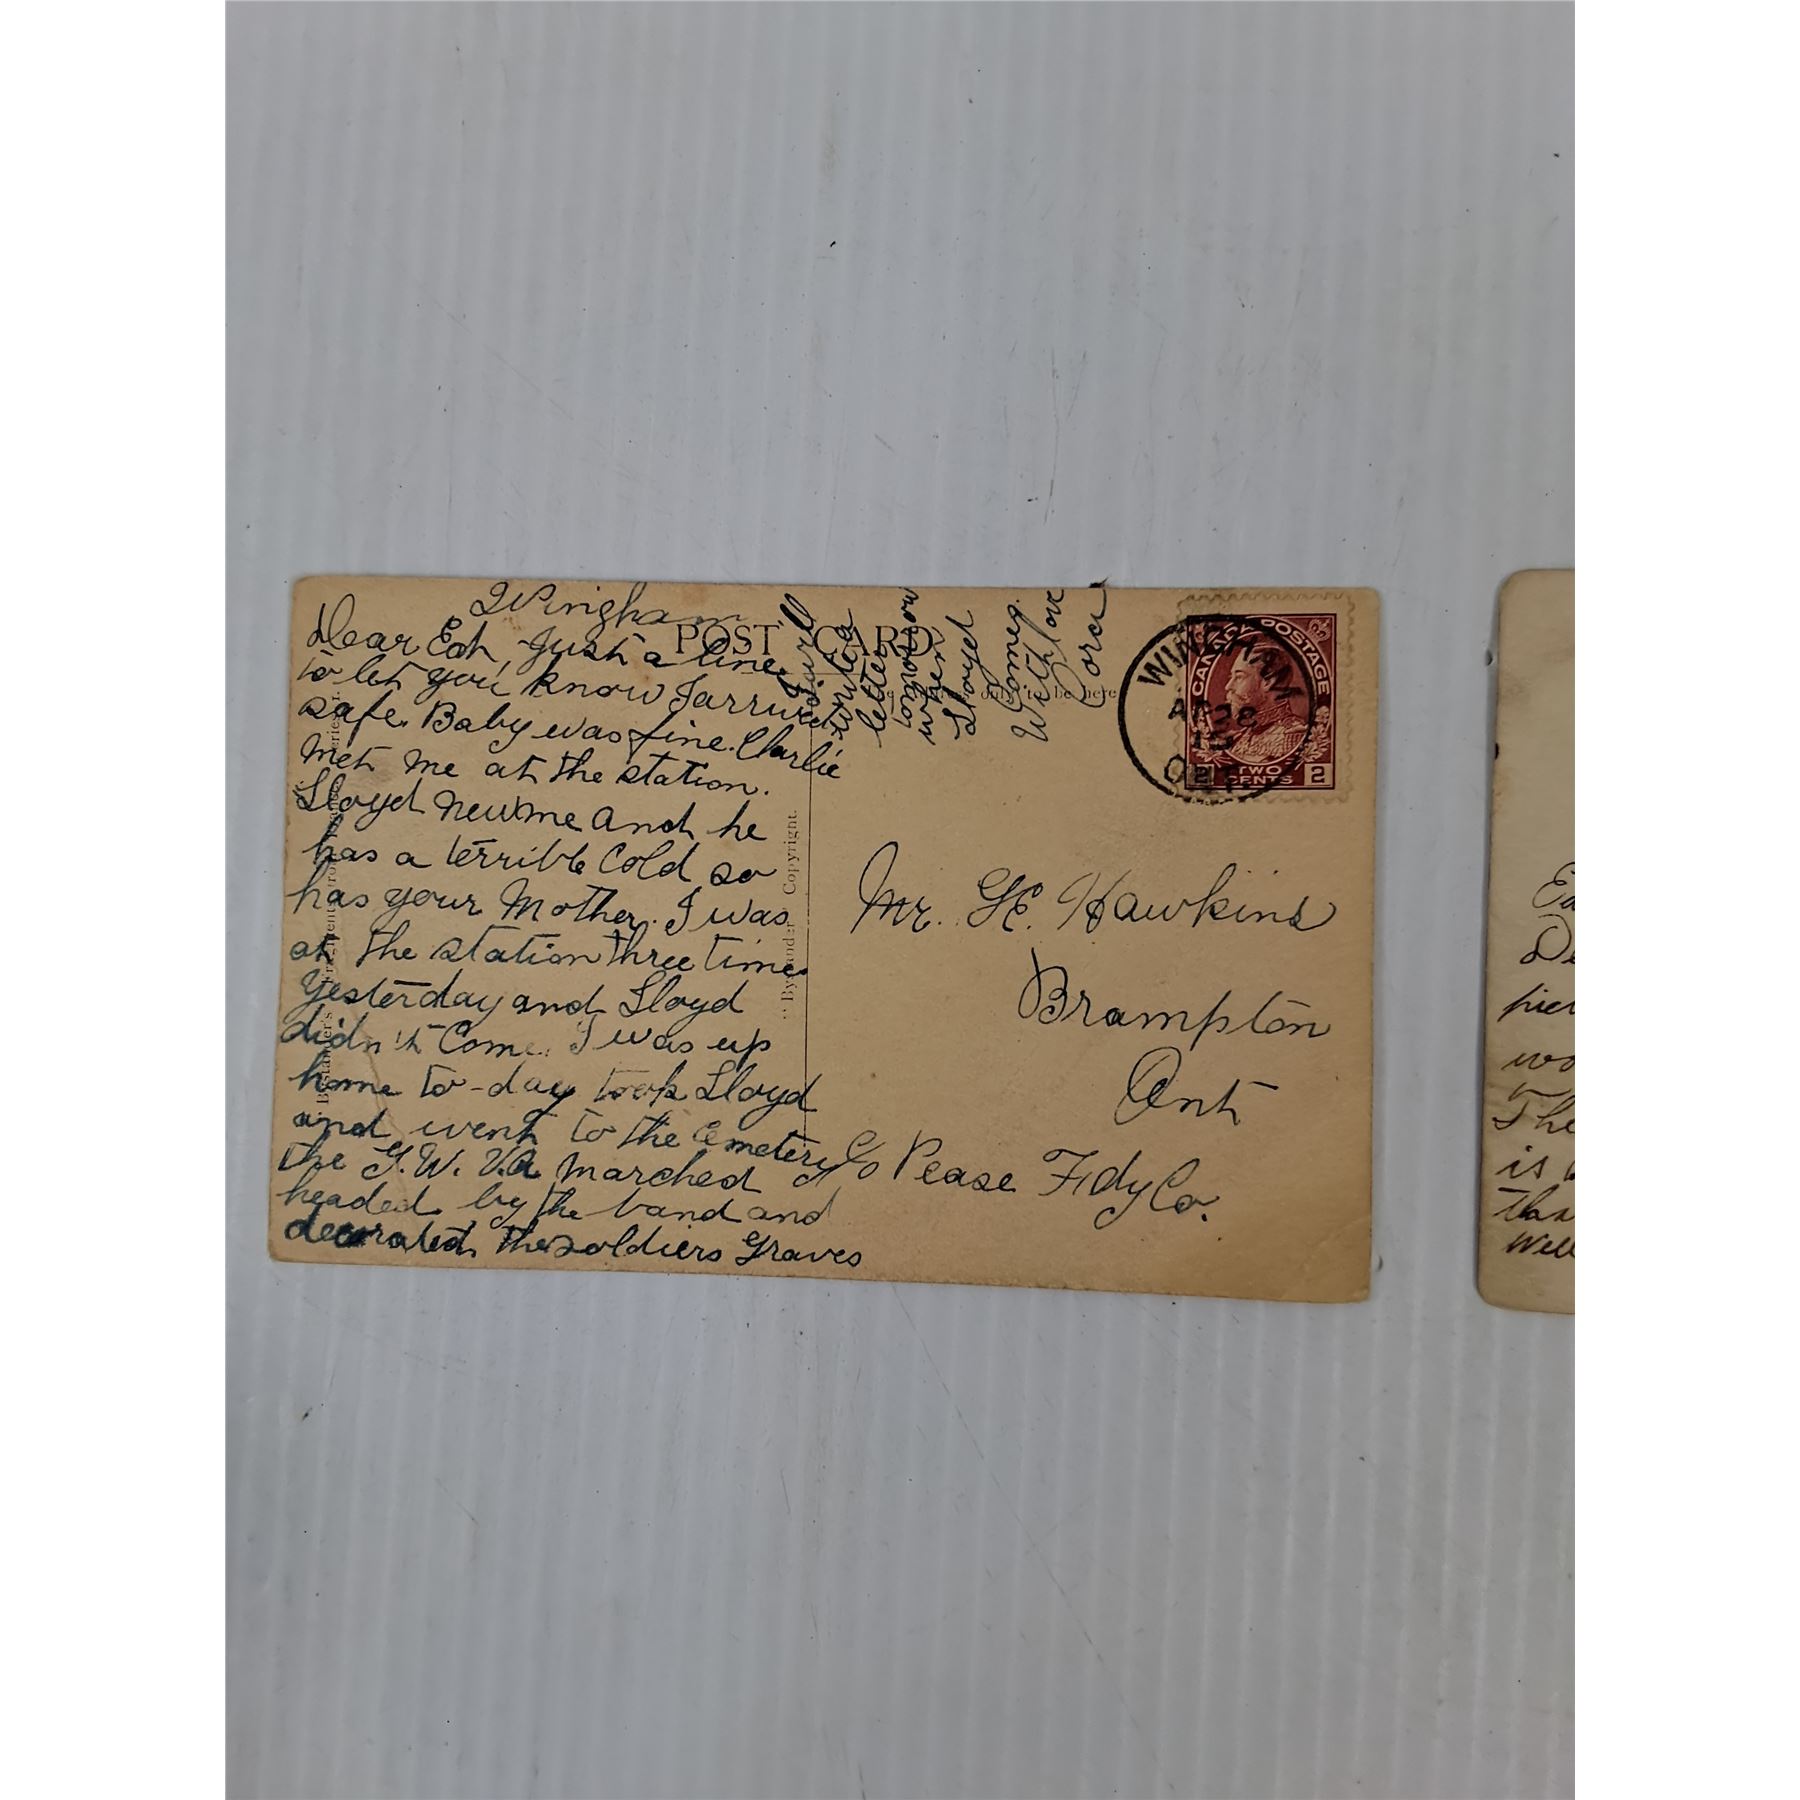 Wingham
Dear Ed, Just a line
to let you know I arrived
safe. Baby was fine. Charlie
met me at the station.
Lloyd new me and he
has a terrible Cold so
has your Mother. I was
at the station three time
Yesterday and Lloyd
didn't Come. I was up
home to-day took Lloyd
and went to the Cemetery
the G.W.V.A marched
headed by the band and
decorated the soldiers Graves
I will
write a
letter
tomorrow
when
Lloyd
Comes.
With love
Cora
POST CARD
only to be here
"Bystander" Copyright.
WINGHAM
AP 28
19
ONT
CANADA POSTAGE
2 TWO CENTS 2
Mr. G E. Hawkins
Brampton
Ont
c/o Pease Fidy Co.
wo
The
is
than
Well